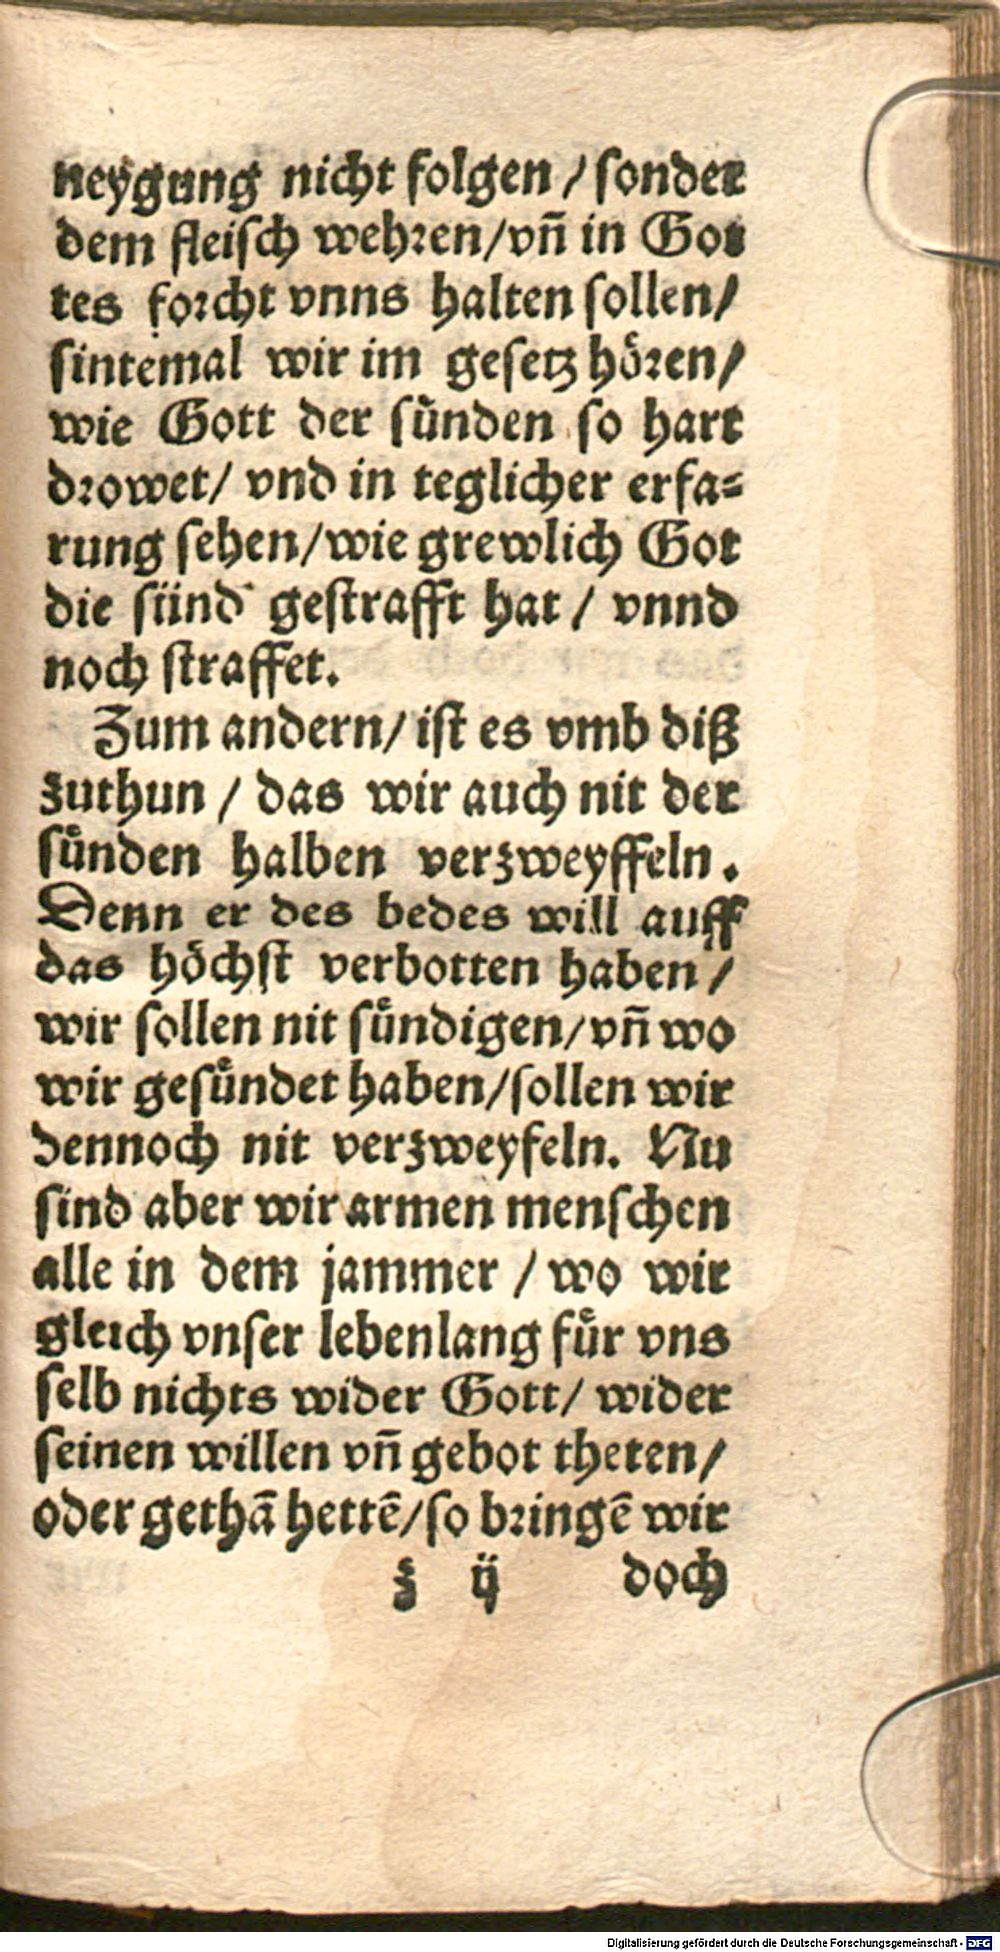 neygung nicht folgen / sonder
dem fleisch wehren/vñ in Got
tes forcht vnns halten sollen/
sintemal wir im gesetz hören/
wie Gott der sünden so hart
drowet/ vnd in teglicher erfa⸗
rung sehen/wie grewlich Got
die sünd gestrafft hat / vnnd
noch straffet.
Zum andern/ ist es vmb diß
zuthun / das wir auch nit der
sünden halben verzweyffeln.
Denn er des bedes will auff
das höchst verbotten haben /
wir sollen nit sündigen/vñ wo
wir gesündet haben/sollen wir
dennoch nit verzweyfeln. Nu
sind aber wir armen menschen
alle in dem jammer / wo wir
gleich vnser lebenlang für vns
selb nichts wider Gott/ wider
seinen willen vñ gebot theten/
oder gethā hettē/so bringē wir
z ij doch
Digitalisierung gefördert durch die Deutsche Forschungsgemeinschaft - DFG